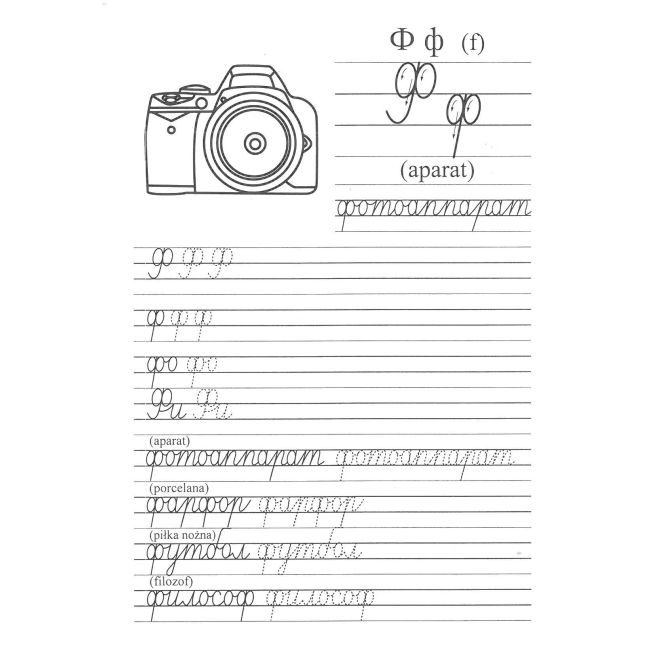 Ф ф (f)
Ф ф
(aparat)
фотоаппарат
Ф Ф Ф
ф ф ф
фо фо
Фи Фи
(aparat)
фотоаппарат фотоаппарат
(porcelana)
фарфор фарфор
(piłka nożna)
футбол футбол
(filozof)
философ философ